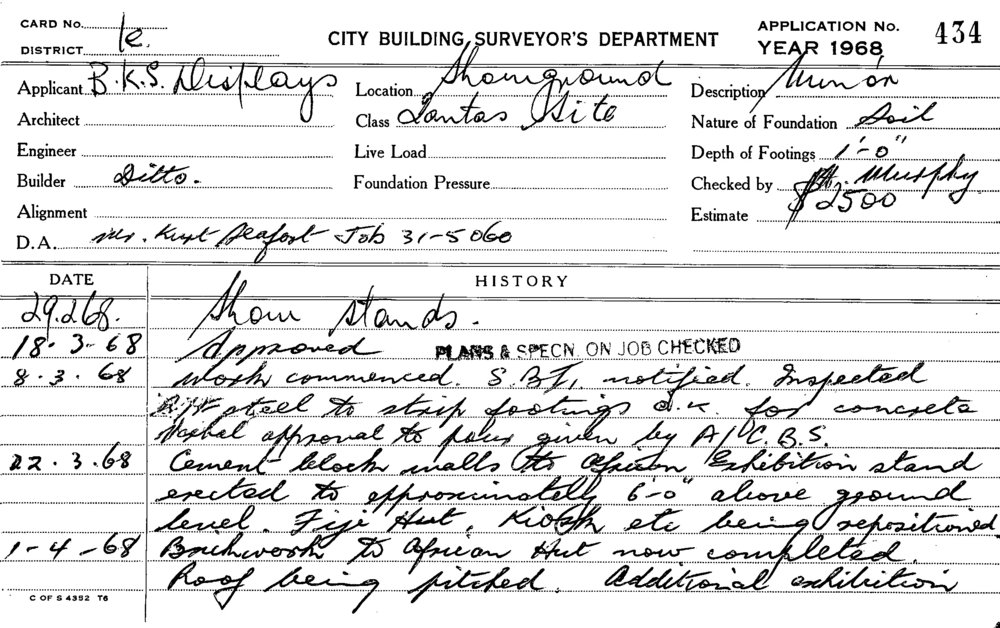 CARD No.
DISTRICT Ie.
CITY BUILDING SURVEYOR'S DEPARTMENT
APPLICATION No. 434
YEAR 1968
Applicant B.K.S. Displays
Location Showground
Description Minor
Architect
Class Qantas Site
Nature of Foundation Soil
Engineer
Live Load
Depth of Footings 1'-0"
Builder Ditto.
Foundation Pressure
Checked by Murphy
Alignment
Estimate $2500
D.A. Mr. Kurt Seafort Job 31-5060
DATE HISTORY
29.2.68. Show stands.
18.3.68 Approved PLANS & SPECN. ON JOB CHECKED
8.3.68 Work commenced. S.B.I. notified. Inspected
steel to strip footings o.k. for concrete
Verbal approval to pour given by A/C.B.S.
22.3.68 Cement block walls to African Exhibition stand
erected to approximately 6'-0" above ground
level. Fiji Hut, Kiosk etc being repositioned.
1-4-68 Brickwork to African Hut now completed.
Roof being pitched. Additional exhibition
C OF S 4352 T6